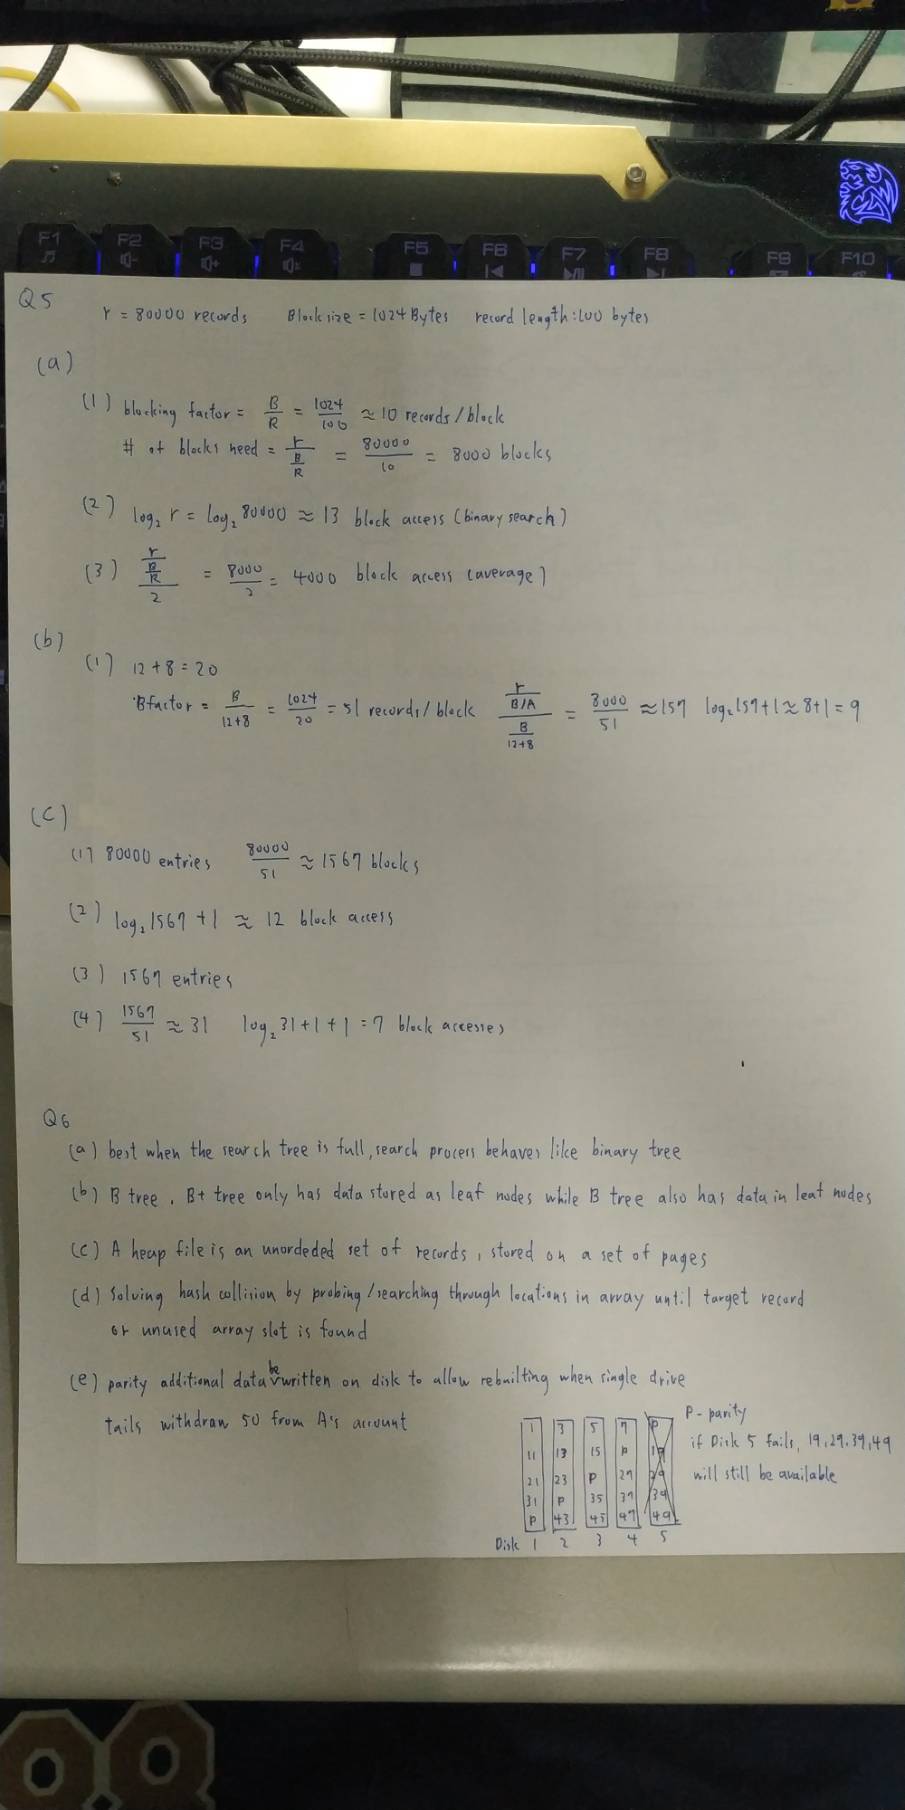 F1 F2 F3 F4 F5 F6 F7 F8 F9 F10
Q5
r = 80000 records Block size = 1024 Bytes record length: 100 bytes
(a)
(1) blocking factor = B/R = 1024/100 ≈ 10 records/block
# of blocks need = r/(B/R) = 80000/10 = 8000 blocks
(2) log₂ r = log₂ 80000 ≈ 13 block access (binary search)
(3) (r/(B/R))/2 = 8000/2 = 4000 block access (average)
(b)
(1) 12+8=20
Bfactor = B/(12+8) = 1024/20 = 51 records/block (r/(B/R))/(B/(12+8)) = 8000/51 ≈ 157 log₂157+1 ≈ 8+1 = 9
(c)
(1) 80000 entries 80000/51 ≈ 1567 blocks
(2) log₂1567 +1 ≈ 12 block access
(3) 1567 entries
(4) 1567/51 ≈ 31 log₂31+1+1 = 7 block accesses
Q6
(a) best when the search tree is full, search process behaves like binary tree
(b) B tree. B+ tree only has data stored as leaf nodes while B tree also has data in leaf nodes
(c) A heap file is an unordeded set of records, stored on a set of pages
(d) Solving hash collision by probing/searching through locations in array until target record
or unused array slot is found
(e) parity additional data be written on disk to allow rebuilting when single drive
fails withdraw 50 from A's account
P - parity
if Disk 5 fails, 19, 29, 39, 49
will still be available
1 3 5 7 P
11 13 15 P 19
21 23 P 27 29
31 P 35 37 39
P 43 45 47 49
Disk 1 2 3 4 5